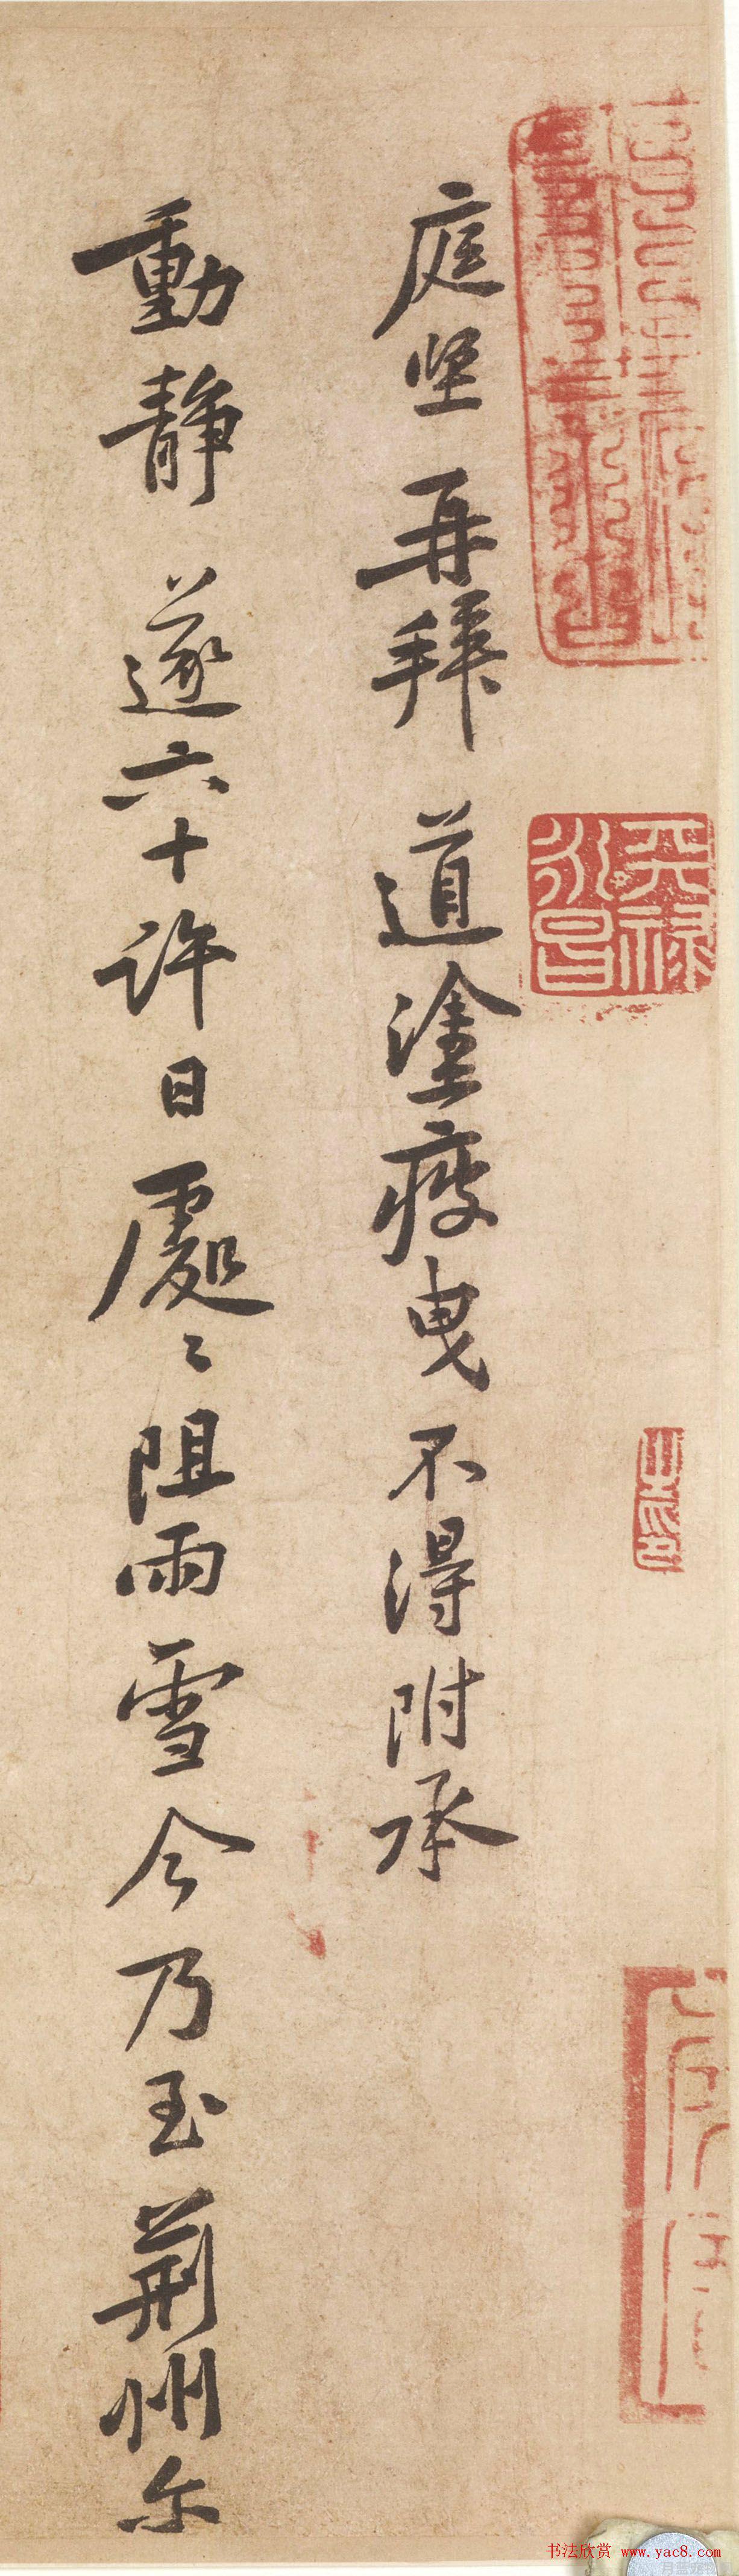 庭坚再拜道塗疲曳不得附承
動静遂六十許日處〻阻雨雪今乃至荆州尔
天禄
永昌
书法欣赏 www.yac8.com